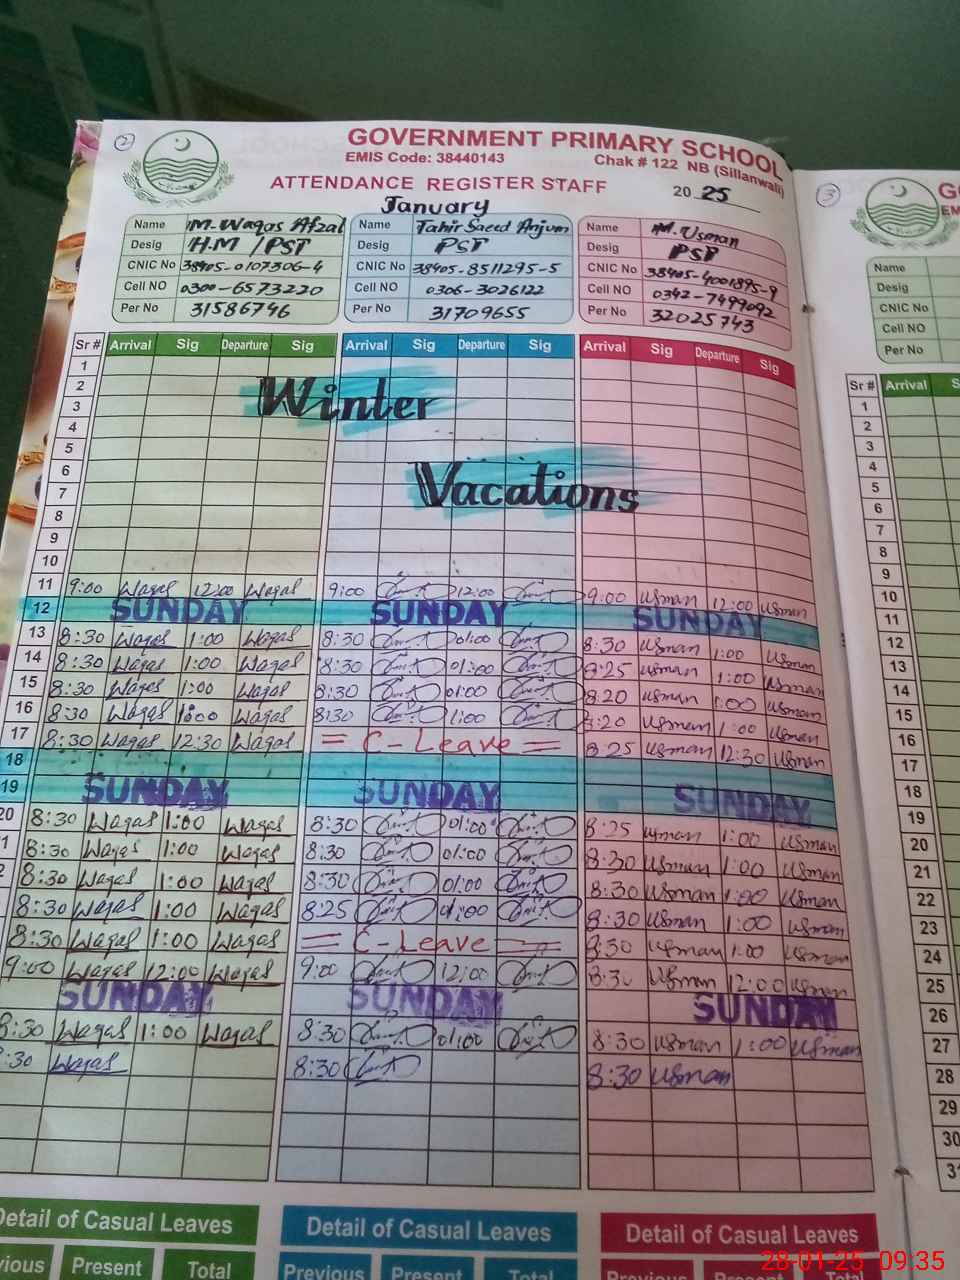 2
GOVERNMENT PRIMARY SCHOOL
EMIS Code: 38440143 Chak # 122 NB (Sillanwali)
ATTENDANCE REGISTER STAFF 20 25
January
Name M. Waqas Afzal Name Tahir Saeed Anjum Name M. Usman
Desig H.M / PST Desig PST Desig PST
CNIC No 38405-0107306-4 CNIC No 38405-8511295-5 CNIC No 38405-4001895-9
Cell NO 0300-6573220 Cell NO 0306-3026122 Cell NO 0342-7499092
Per No 31586746 Per No 31709655 Per No 32025743
Sr # Arrival Sig Departure Sig Arrival Sig Departure Sig Arrival Sig Departure Sig
1
2
3
4
5
6
7
8
9
10
Winter
Vacations
11 9:00 Waqas 12:00 Waqas 9:00 12:00 9:00 Usman 12:00 Usman
12 SUNDAY SUNDAY SUNDAY
13 8:30 Waqas 1:00 Waqas 8:30 01:00 8:30 Usman 1:00 Usman
14 8:30 Waqas 1:00 Waqas 8:30 01:00 8:25 Usman 1:00 Usman
15 8:30 Waqas 1:00 Waqas 8:30 01:00 8:20 Usman 1:00 Usman
16 8:30 Waqas 1:00 Waqas 8:30 1:00 8:20 Usman 1:00 Usman
17 8:30 Waqas 12:30 Waqas = C-Leave = 8:25 Usman 12:30 Usman
18
19 SUNDAY SUNDAY SUNDAY
20 8:30 Waqas 1:00 Waqas 8:30 01:00 8:25 Usman 1:00 Usman
1 8:30 Waqas 1:00 Waqas 8:30 01:00 8:30 Usman 1:00 Usman
2 8:30 Waqas 1:00 Waqas 8:30 01:00 8:30 Usman 1:00 Usman
8:30 Waqas 1:00 Waqas 8:25 01:00 8:30 Usman 1:00 Usman
8:30 Waqas 1:00 Waqas = C-Leave = 8:30 Usman 1:00 Usman
9:00 Waqas 12:00 Waqas 9:00 12:00 8:30 Usman 12:00 Usman
SUNDAY SUNDAY SUNDAY
8:30 Waqas 1:00 Waqas 8:30 01:00 8:30 Usman 1:00 Usman
:30 Waqas 8:30 8:30 Usman
Detail of Casual Leaves Detail of Casual Leaves Detail of Casual Leaves
vious Present Total Previous Present Total Previous Present Total
3
Name
Desig
CNIC No
Cell NO
Per No
Sr # Arrival S
1
2
3
4
5
6
7
8
9
10
11
12
13
14
15
16
17
18
19
20
21
22
23
24
25
26
27
28
29
30
31
28-01-25 09:35